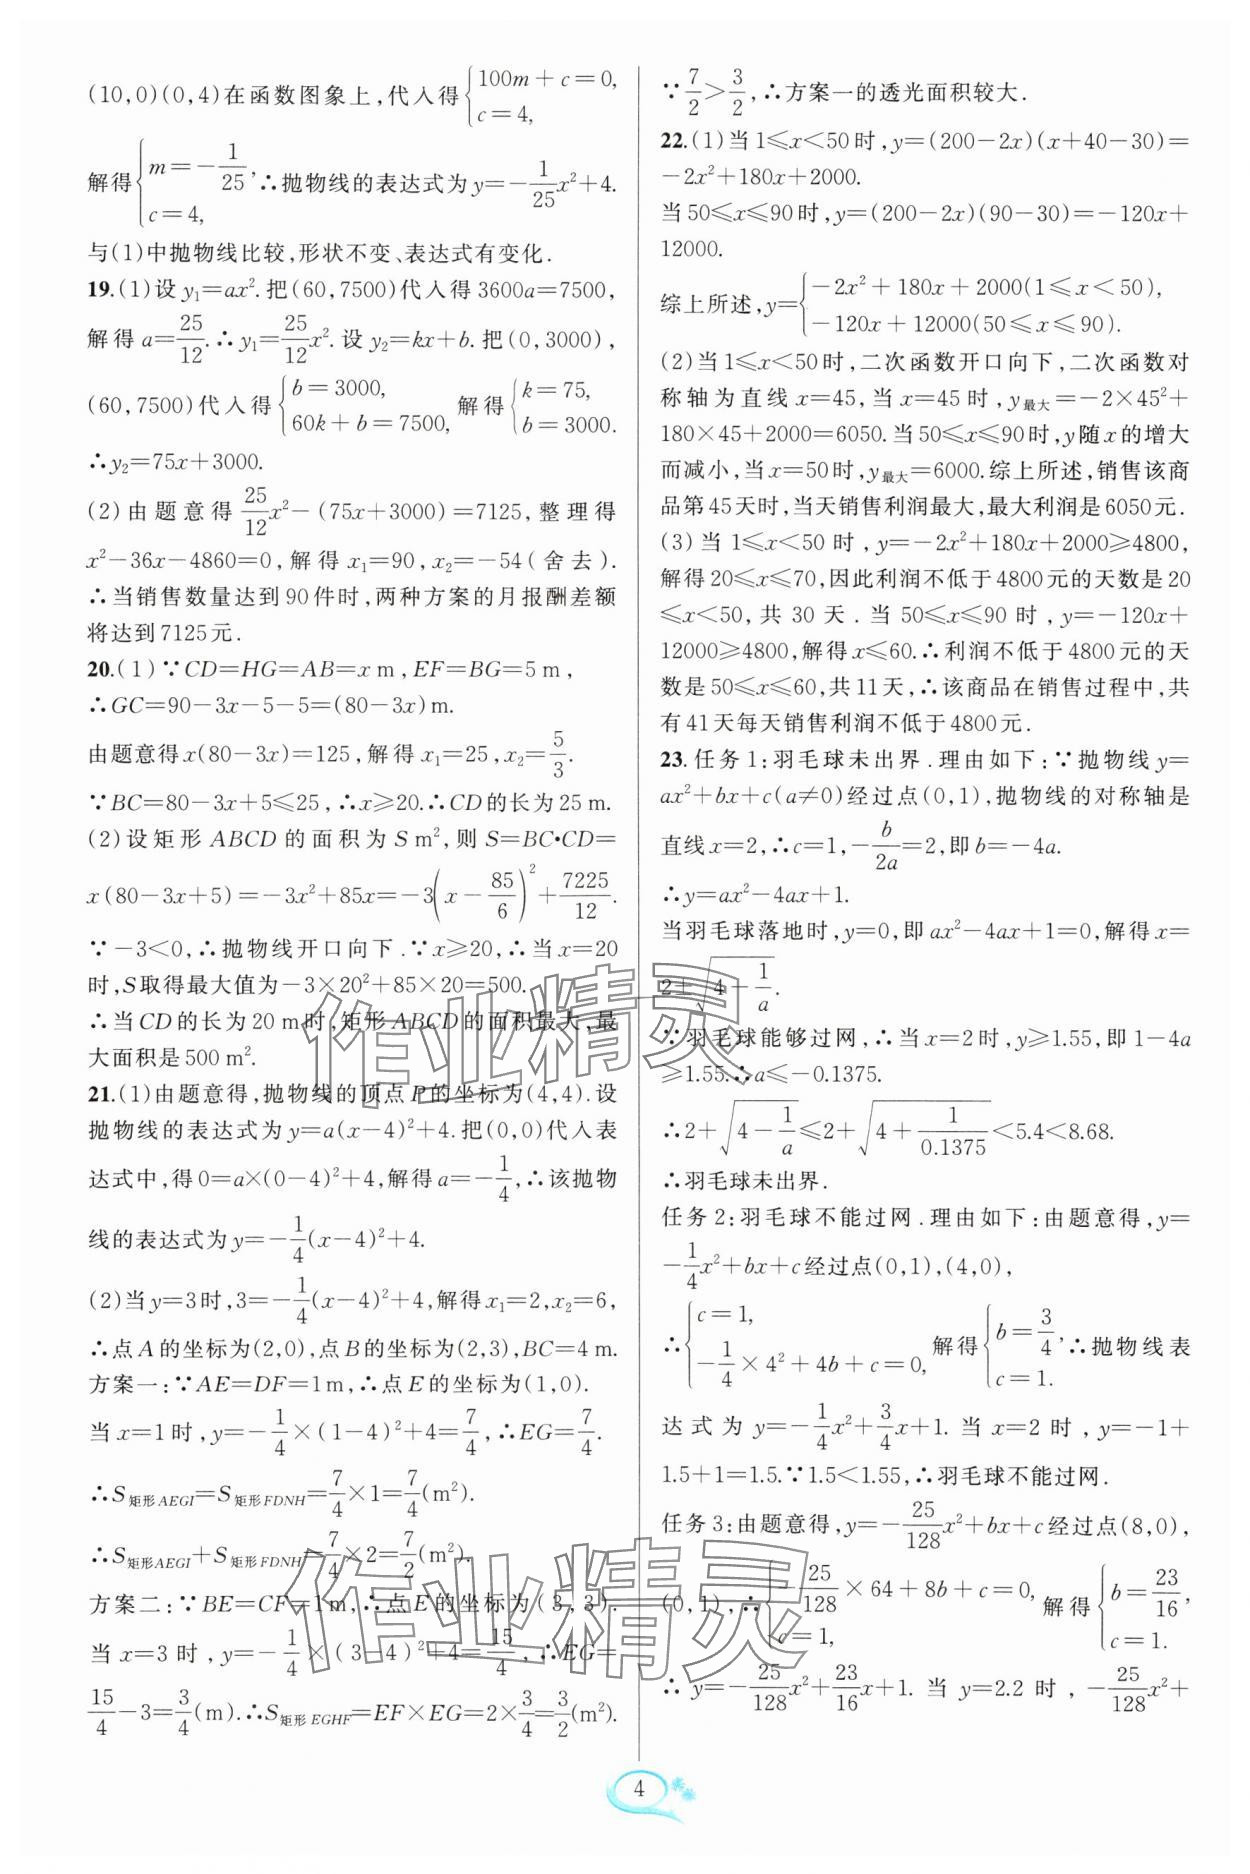 (10,0)(0,4)在函数图象上,代入得{100m+c=0, c=4,
解得{m=-1/25, c=4, ∴抛物线的表达式为y=-1/25x²+4.
与(1)中抛物线比较,形状不变、表达式有变化.
19.(1)设y₁=ax².把(60,7500)代入得3600a=7500,
解得a=25/12.∴y₁=25/12x².设y₂=kx+b.把(0,3000),
(60,7500)代入得{b=3000, 60k+b=7500, 解得{k=75, b=3000.
∴y₂=75x+3000.
(2)由题意得25/12x²-(75x+3000)=7125,整理得
x²-36x-4860=0,解得x₁=90,x₂=-54(舍去).
∴当销售数量达到90件时,两种方案的月报酬差额
将达到7125元.
20.(1)∵CD=HG=AB=x m,EF=BG=5 m,
∴GC=90-3x-5-5=(80-3x)m.
由题意得x(80-3x)=125,解得x₁=25,x₂=5/3.
∵BC=80-3x+5≤25,∴x≥20.∴CD的长为25 m.
(2)设矩形ABCD的面积为S m²,则S=BC·CD=
x(80-3x+5)=-3x²+85x=-3(x-85/6)²+7225/12.
∵-3<0,∴抛物线开口向下.∵x≥20,∴当x=20
时,S取得最大值为-3×20²+85×20=500.
∴当CD的长为20 m时,矩形ABCD的面积最大,最
大面积是500 m².
21.(1)由题意得,抛物线的顶点P的坐标为(4,4).设
抛物线的表达式为y=a(x-4)²+4.把(0,0)代入表
达式中,得0=a×(0-4)²+4,解得a=-1/4,∴该抛物
线的表达式为y=-1/4(x-4)²+4.
(2)当y=3时,3=-1/4(x-4)²+4,解得x₁=2,x₂=6,
∴点A的坐标为(2,0),点B的坐标为(2,3),BC=4 m.
方案一:∵AE=DF=1m,∴点E的坐标为(1,0).
当x=1时,y=-1/4×(1-4)²+4=7/4,∴EG=7/4.
∴S矩形AEGI=S矩形FDNH=7/4×1=7/4(m²).
∴S矩形AEGI+S矩形FDNH=7/4×2=7/2(m²).
方案二:∵BE=CF=1m,∴点E的坐标为(3,3).
当x=3时,y=-1/4×(3-4)²+4=15/4,∴EG=
15/4-3=3/4(m).∴S矩形EGHF=EF×EG=2×3/4=3/2(m²).
∵7/2>3/2,∴方案一的透光面积较大.
22.(1)当1≤x<50时,y=(200-2x)(x+40-30)=
-2x²+180x+2000.
当50≤x≤90时,y=(200-2x)(90-30)=-120x+
12000.
综上所述,y={-2x²+180x+2000(1≤x<50), -120x+12000(50≤x≤90).
(2)当1≤x<50时,二次函数开口向下,二次函数对
称轴为直线x=45,当x=45时,y最大=-2×45²+
180×45+2000=6050.当50≤x≤90时,y随x的增大
而减小,当x=50时,y最大=6000.综上所述,销售该商
品第45天时,当天销售利润最大,最大利润是6050元.
(3)当1≤x<50时,y=-2x²+180x+2000≥4800,
解得20≤x≤70,因此利润不低于4800元的天数是20
≤x<50,共30天.当50≤x≤90时,y=-120x+
12000≥4800,解得x≤60.∴利润不低于4800元的天
数是50≤x≤60,共11天,∴该商品在销售过程中,共
有41天每天销售利润不低于4800元.
23.任务1:羽毛球未出界.理由如下:∵抛物线y=
ax²+bx+c(a≠0)经过点(0,1),抛物线的对称轴是
直线x=2,∴c=1,-b/2a=2,即b=-4a.
∴y=ax²-4ax+1.
当羽毛球落地时,y=0,即ax²-4ax+1=0,解得x=
2±√(4-1/a).
∵羽毛球能够过网,∴当x=2时,y≥1.55,即1-4a
≥1.55.∴a≤-0.1375.
∴2+√(4-1/a)≤2+√(4+1/0.1375)<5.4<8.68.
∴羽毛球未出界.
任务2:羽毛球不能过网.理由如下:由题意得,y=
-1/4x²+bx+c经过点(0,1),(4,0),
∴{c=1, -1/4×4²+4b+c=0, 解得{b=3/4, c=1. ∴抛物线表
达式为y=-1/4x²+3/4x+1.当x=2时,y=-1+
1.5+1=1.5.∵1.5<1.55,∴羽毛球不能过网.
任务3:由题意得,y=-25/128x²+bx+c经过点(8,0),
(0,1),∴{-25/128×64+8b+c=0, c=1, 解得{b=23/16, c=1.
∴y=-25/128x²+23/16x+1.当y=2.2时,-25/128x²+
4
作业精灵
作业精灵